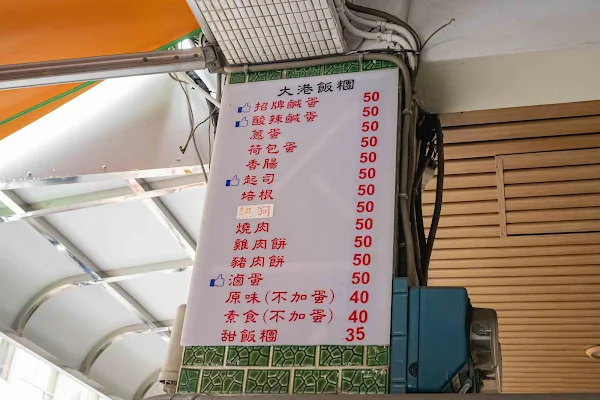 大港飯糰
招牌鹹蛋 50
酸辣鹹蛋 50
蔥蛋 50
荷包蛋 50
香腸 50
起司 50
培根 50
熱狗 50
燒肉 50
雞肉餅 50
豬肉餅 50
滷蛋 50
原味(不加蛋) 40
素食(不加蛋) 40
甜飯糰 35